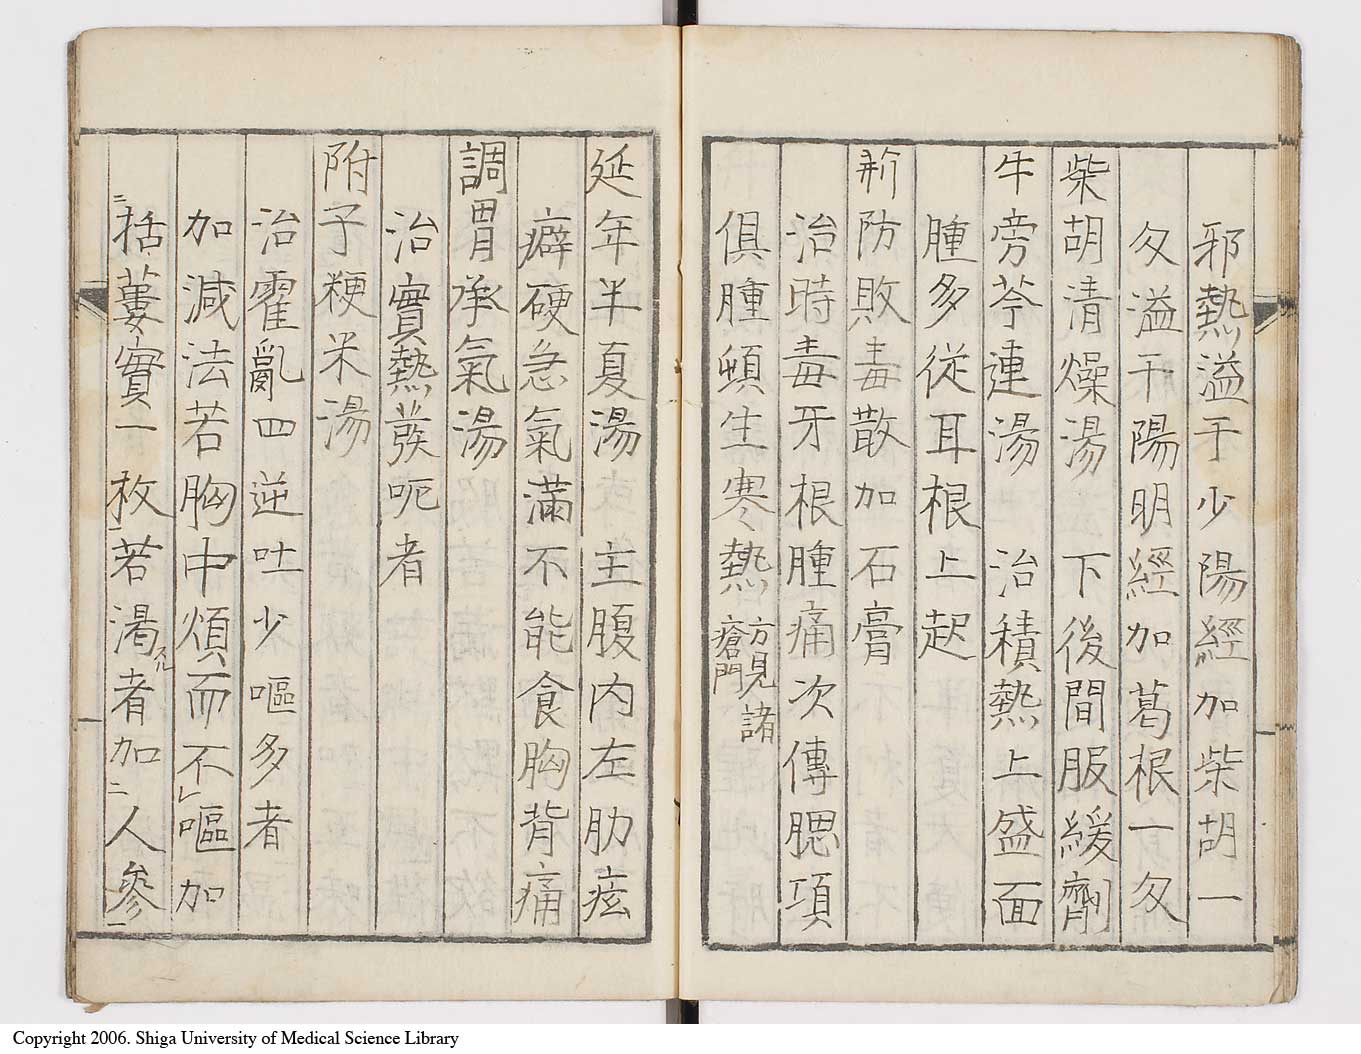 邪熱溢于少陽經加柴胡一
匁溢于陽明經加葛根一匁
柴胡清燥湯　下後間服緩劑
牛旁芩連湯　治積熱上盛面
腫多從耳根上起
荊防敗毒散加石膏
治時毒牙根腫痛次傳腮項
俱腫頓生寒熱方見諸瘡門
延年半夏湯　主腹内左肋痃
癖硬急氣滿不能食胸背痛
調胃承氣湯
治實熱發呃者
附子粳米湯
治霍亂四逆吐少嘔多者
加減法若胸中煩而不レ嘔加
二括蔞實一枚一若渇スル者加二人參一
Copyright 2006. Shiga University of Medical Science Library